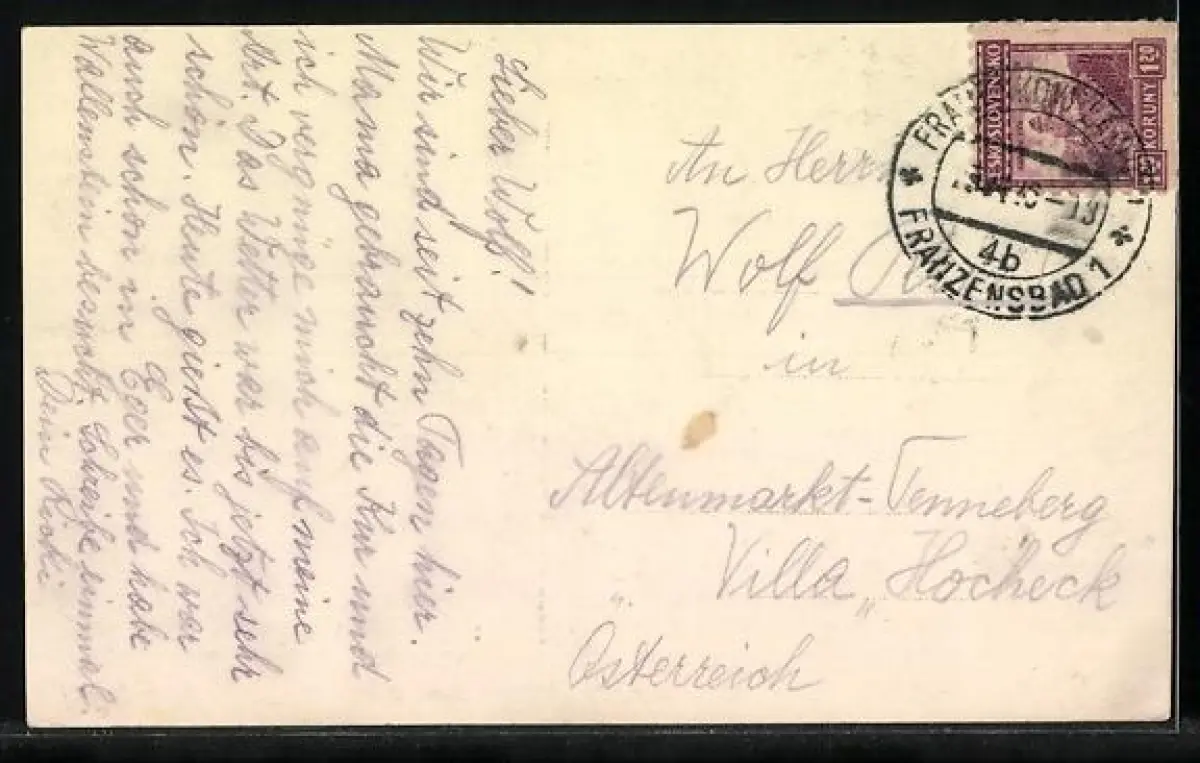 Lieber Wolf!
Wir sind seit zehn Tagen hier.
Mama gebraucht die Kur und
ich vergnüge mich auf meine
Art. Das Wetter war bis jetzt sehr
schön. Heute giest es. Ich war
auch schon in Eger und habe
Wallenstein besucht. Schreibe einmal.
Dein
An Herrn
Wolf
in
Altenmarkt-Tenneberg
Villa „Hocheck"
Österreich
ČESKOSLOVENSKO
1.20
KORUNY
4b
FRANZENSBAD 1